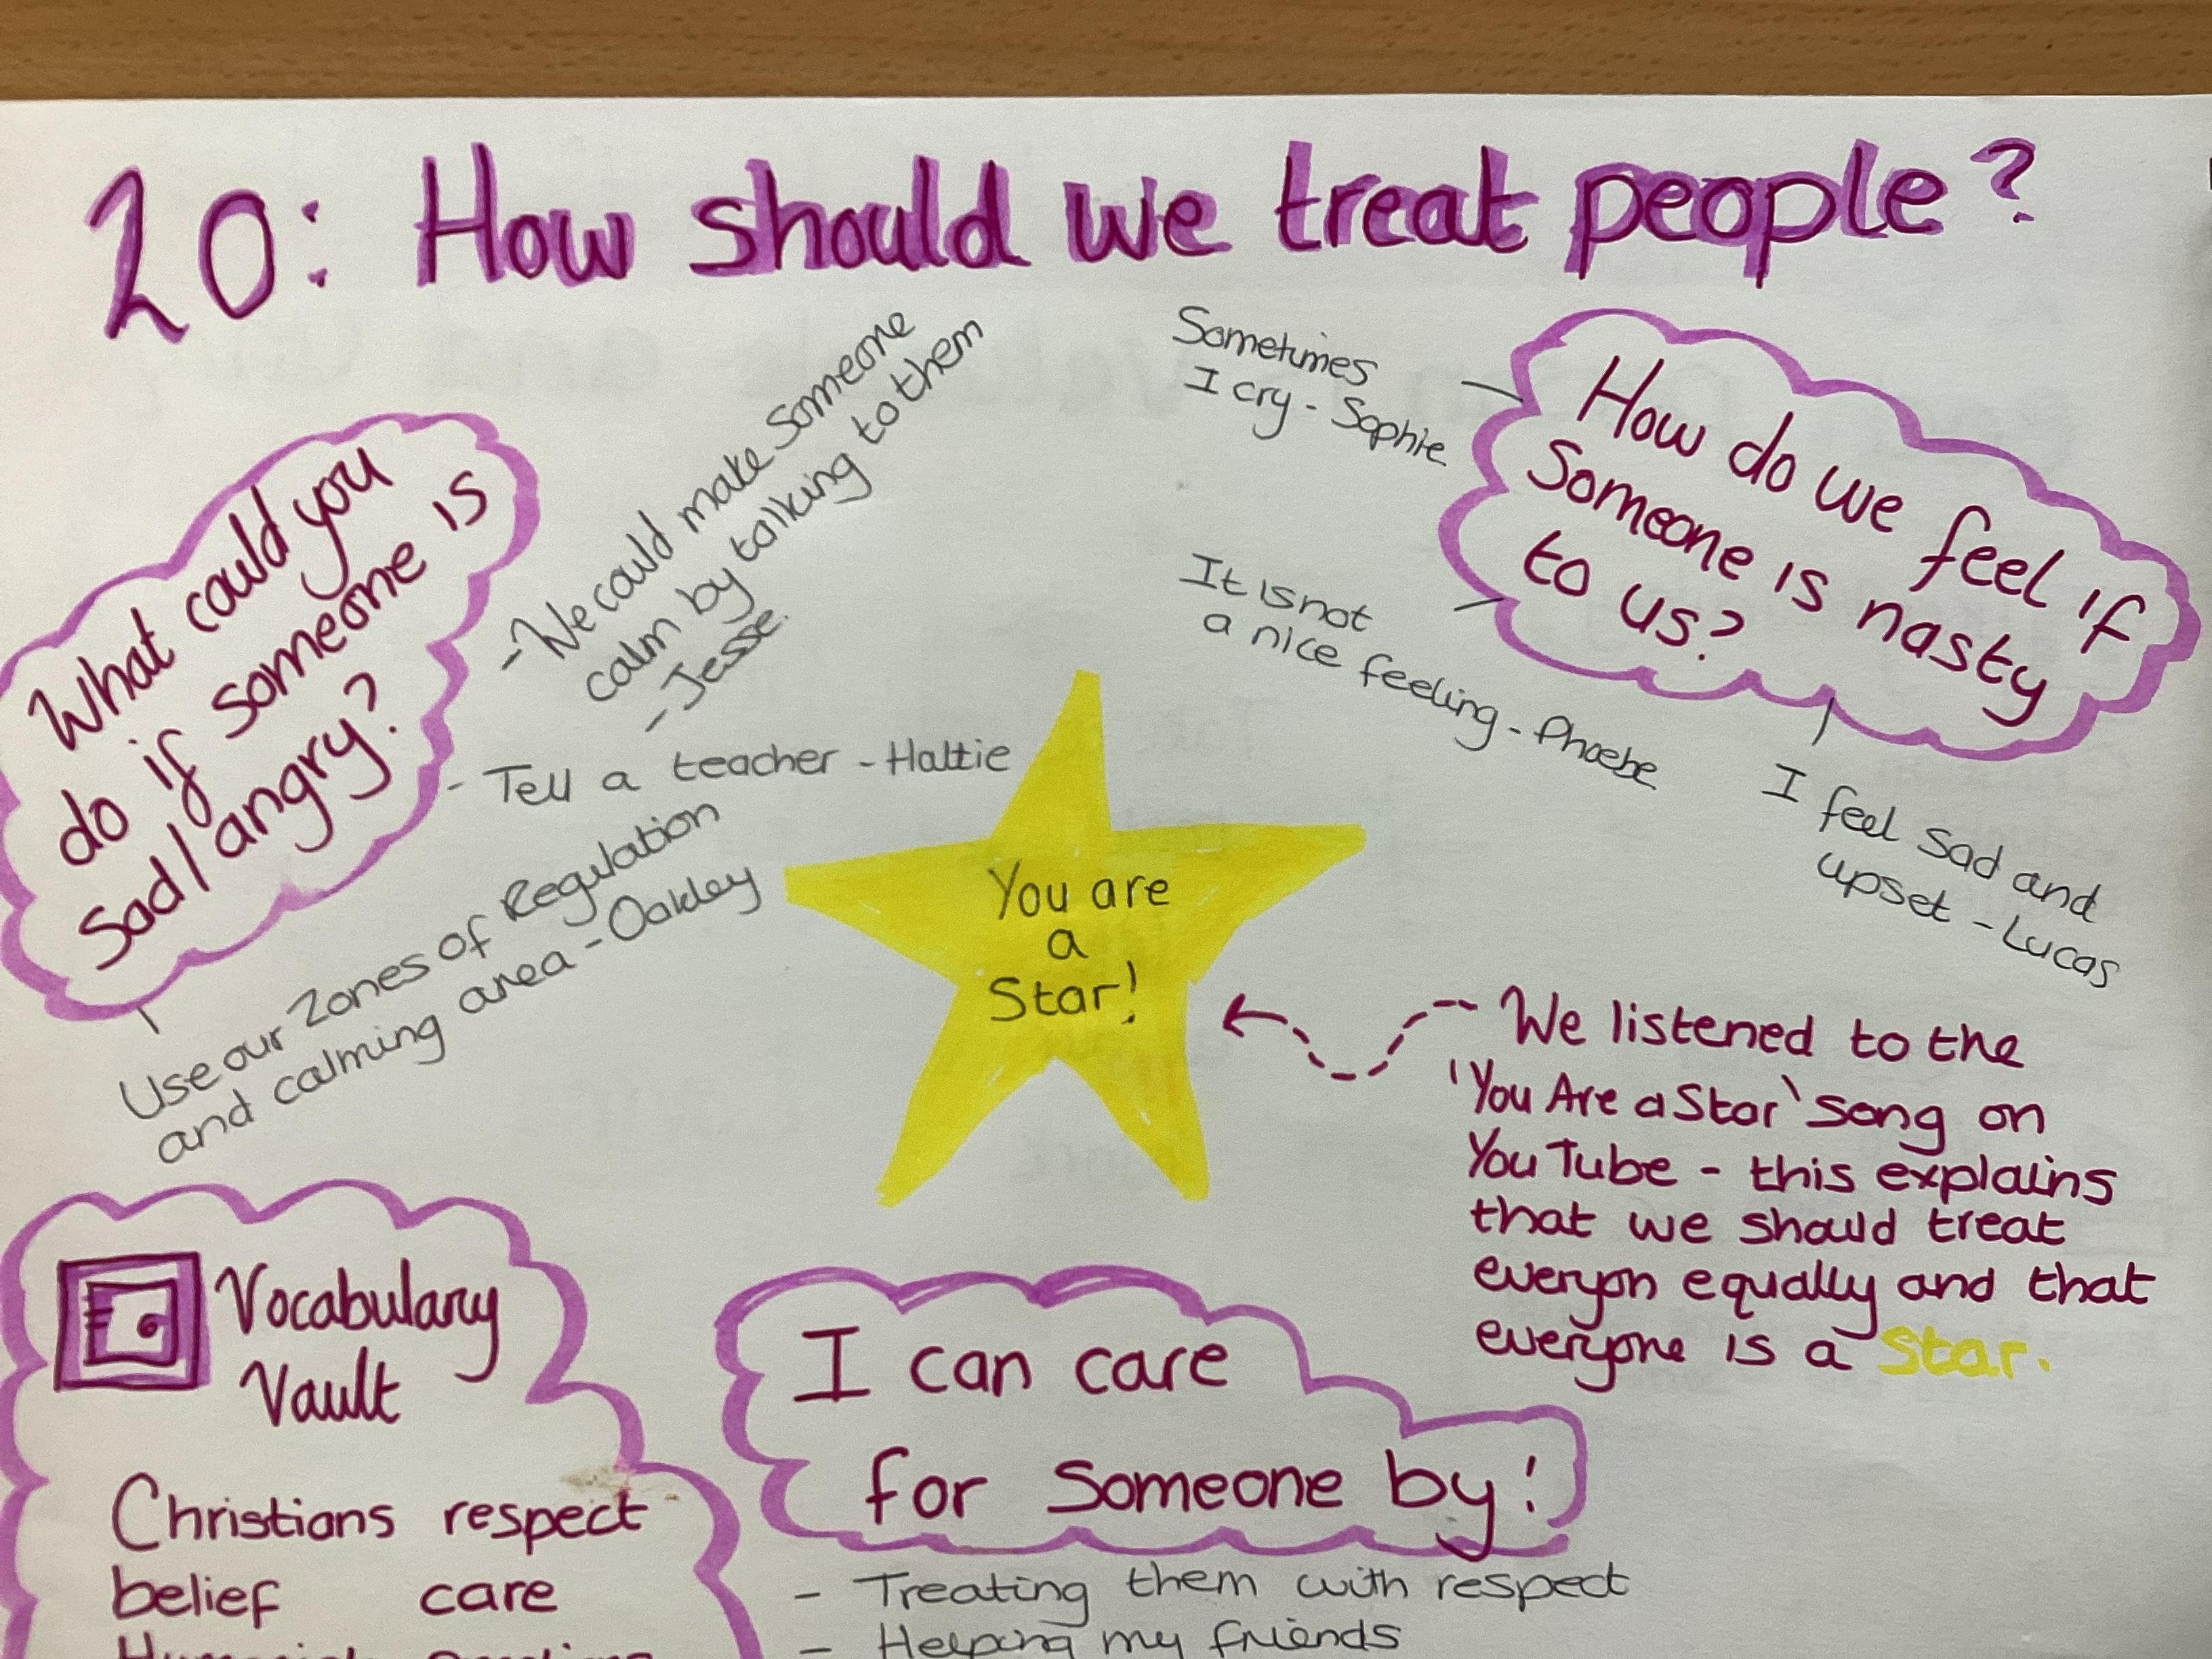 20: How should we treat people?
What could you
do if someone is
sad/angry?
- We could make someone
calm by talking to them
- Jesse.
- Tell a teacher - Hattie
Use our Zones of Regulation
and calming area - Oakley
How do we feel if
someone is nasty
to us?
Sometimes
I cry - Sophie
It is not
a nice feeling - Phoebe
I feel sad and
upset - Lucas
You are
a
Star!
We listened to the
'You Are a Star' song on
YouTube - this explains
that we should treat
everyon equally and that
everyone is a Star.
Vocabulary
Vault
Christians respect
belief care
I can care
for someone by!
- Treating them with respect
- Helping my friends